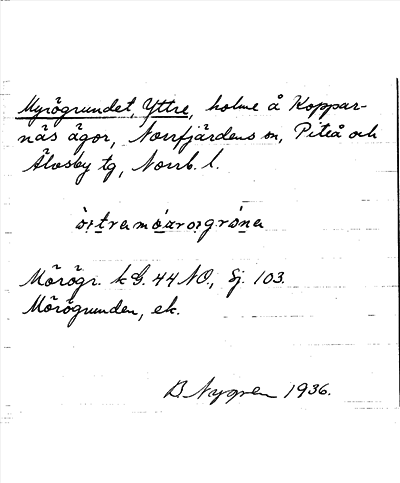 Myrögrundet, Yttre, holme å Koppar-
näs ägor, Norrfjärdens sn, Piteå och
Älvsby tg, Norrb. l.
Mörögr. kG. 44 NO., Sj. 103.
Mörögrunden, ek.
B. Nygren 1936.